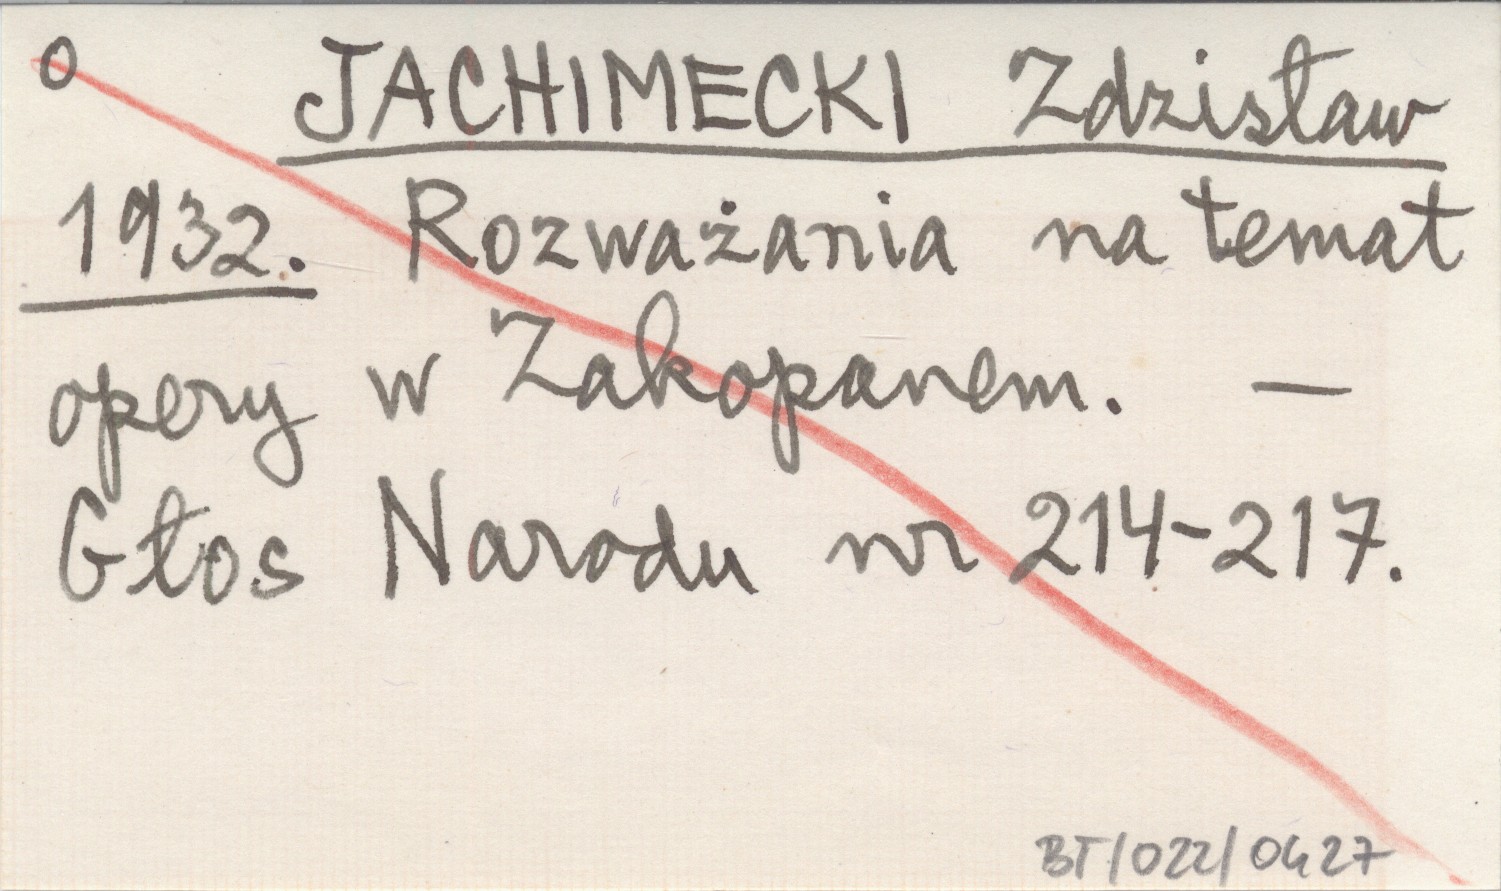 0 JACHIMECKI Zdzisław
1932. Rozważania na temat
opery w Zakopanem. —
Głos Narodu nr 214-217.
BT/022/0427